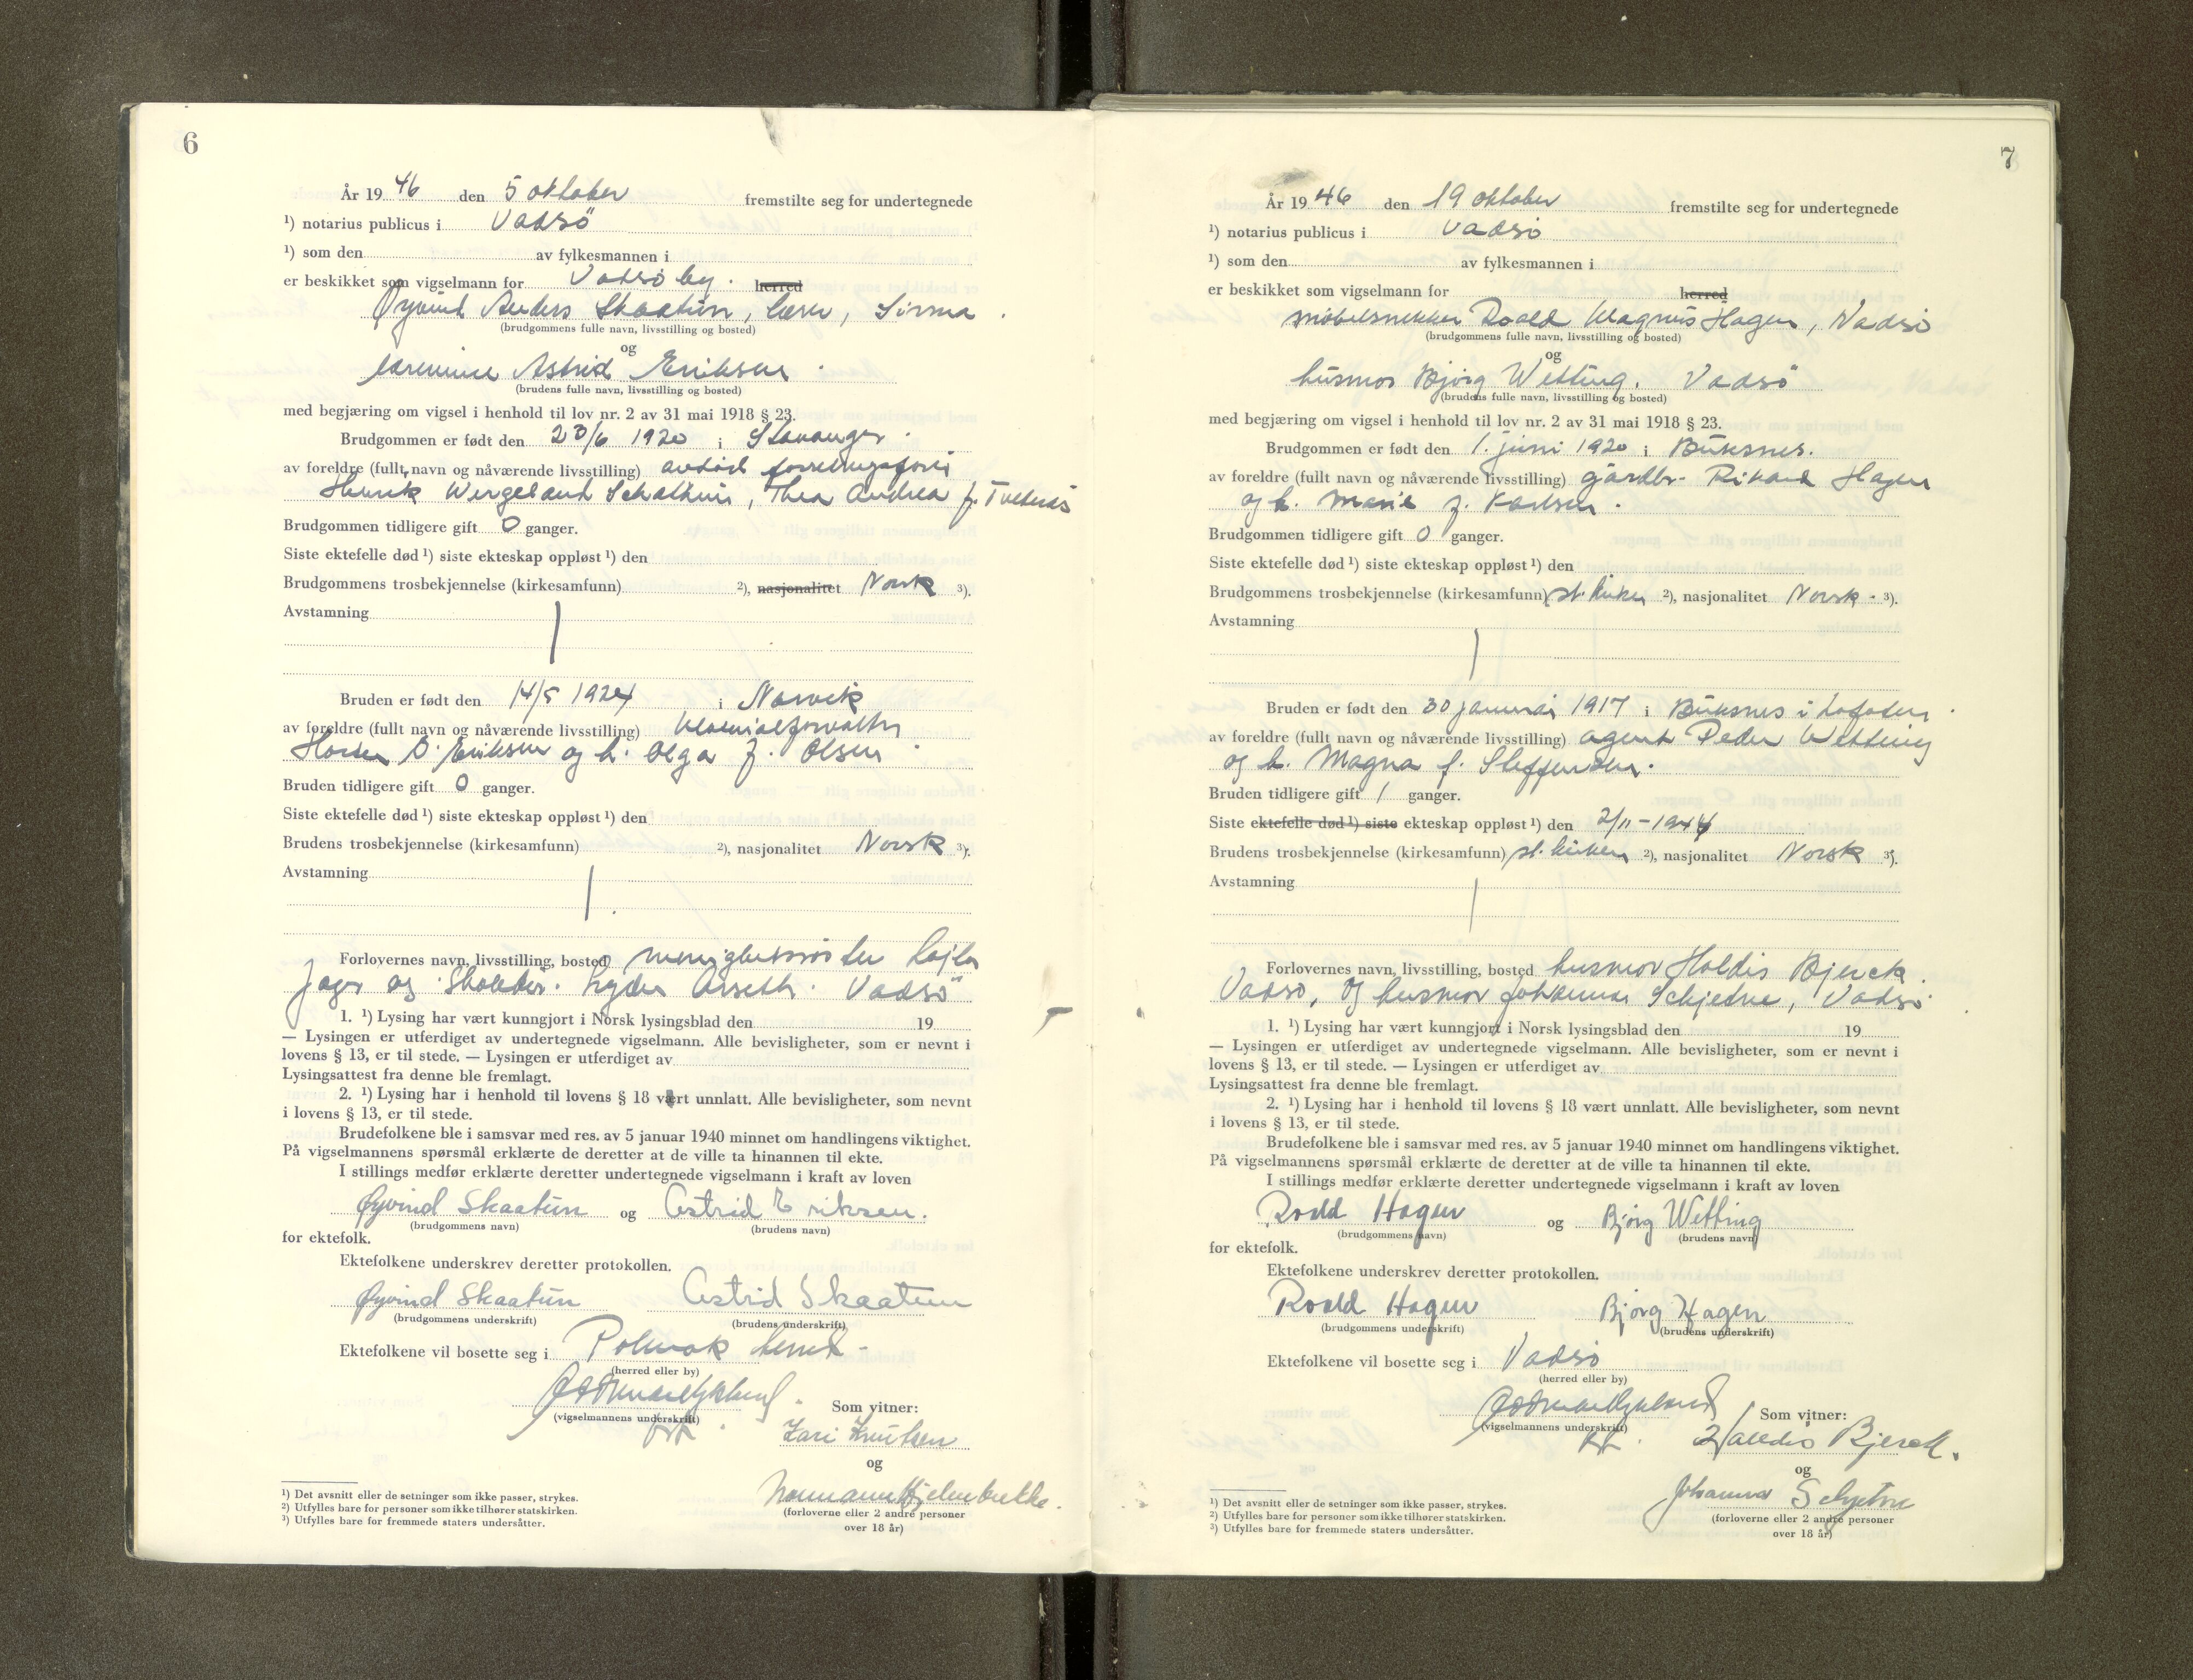 6
År 19 46 den 5 oktober fremstilte seg for undertegnede
¹) notarius publicus i Vadsö
¹) som den av fylkesmannen i
er beskikket som vigselmann for Vadsö by. herred
Øyvind Anders Skaatun, lærer, Sirma.
(brudgommens fulle navn, livsstilling og bosted)
og
lærerinne Astrid Eriksen.
(brudens fulle navn, livsstilling og bosted)
med begjæring om vigsel i henhold til lov nr. 2 av 31 mai 1918 § 23.
Brudgommen er født den 23/6 1920 i Stavanger.
av foreldre (fullt navn og nåværende livsstilling) avdød
Henrik Wergeland , Thea Andrea f.
Brudgommen tidligere gift 0 ganger.
Siste ektefelle død ¹) siste ekteskap oppløst ¹) den
Brudgommens trosbekjennelse (kirkesamfunn) ²), nasjonalitet Norsk ³).
Avstamning
Bruden er født den 14/5 1924 i Narvik
av foreldre (fullt navn og nåværende livsstilling)
O. Eriksen og h. Olga f. Olsen.
Bruden tidligere gift 0 ganger.
Siste ektefelle død ¹) siste ekteskap oppløst ¹) den
Brudens trosbekjennelse (kirkesamfunn) ²), nasjonalitet Norsk ³).
Avstamning
Forlovernes navn, livsstilling, bosted menighetssøster Lajla
Jager og Vadsö
1. ¹) Lysing har vært kunngjort i Norsk lysingsblad den 19
— Lysingen er utferdiget av undertegnede vigselmann. Alle bevisligheter, som er nevnt i
lovens § 13, er til stede. — Lysingen er utferdiget av
Lysingsattest fra denne ble fremlagt.
2. ¹) Lysing har i henhold til lovens § 18 vært unnlatt. Alle bevisligheter, som nevnt
i lovens § 13, er til stede.
Brudefolkene ble i samsvar med res. av 5 januar 1940 minnet om handlingens viktighet.
På vigselmannens spørsmål erklærte de deretter at de ville ta hinannen til ekte.
I stillings medfør erklærte deretter undertegnede vigselmann i kraft av loven
Øyvind Skaatun og Astrid Eriksen.
(brudgommens navn) (brudens navn)
for ektefolk.
Ektefolkene underskrev deretter protokollen.
Øyvind Skaatun Astrid Skaatun
(brudgommens underskrift) (brudens underskrift)
Ektefolkene vil bosette seg i Polmak herred.
(herred eller by)
Som vitner:
(vigselmannens underskrift)
Kari Knutsen
og
(forloverne eller 2 andre personer
over 18 år)
¹) Det avsnitt eller de setninger som ikke passer, strykes.
²) Utfylles bare for personer som ikke tilhører statskirken.
³) Utfylles bare for fremmede staters undersåtter.
7
År 19 46 den 19 oktober fremstilte seg for undertegnede
¹) notarius publicus i Vadsö
¹) som den av fylkesmannen i
er beskikket som vigselmann for herred
möbelsnekker Roald Magnus Hagen, Vadsö
(brudgommens fulle navn, livsstilling og bosted)
og
husmor Bjørg Wetting. Vadsö
(brudens fulle navn, livsstilling og bosted)
med begjæring om vigsel i henhold til lov nr. 2 av 31 mai 1918 § 23.
Brudgommen er født den 1. juni 1920 i Buksnes.
av foreldre (fullt navn og nåværende livsstilling) gårdbr. Rikard Hagen
og h. Marie f. Karlsen.
Brudgommen tidligere gift 0 ganger.
Siste ektefelle død ¹) siste ekteskap oppløst ¹) den
Brudgommens trosbekjennelse (kirkesamfunn) st. kirken ²), nasjonalitet Norsk. ³).
Avstamning
Bruden er født den 30 januar 1917 i Buksnes i Lofoten.
av foreldre (fullt navn og nåværende livsstilling) agent Peder Wetting
og h. Magna f. Steffensen.
Bruden tidligere gift 1 ganger.
Siste ektefelle død ¹) siste ekteskap oppløst ¹) den 2/11-1944
Brudens trosbekjennelse (kirkesamfunn) st. kirken ²), nasjonalitet Norsk ³).
Avstamning
Forlovernes navn, livsstilling, bosted husmor Haldis Bjerck.
Vadsö, og husmor Johanna Schjetne, Vadsö.
1. ¹) Lysing har vært kunngjort i Norsk lysingsblad den 19
— Lysingen er utferdiget av undertegnede vigselmann. Alle bevisligheter, som er nevnt i
lovens § 13, er til stede. — Lysingen er utferdiget av
Lysingsattest fra denne ble fremlagt.
2. ¹) Lysing har i henhold til lovens § 18 vært unnlatt. Alle bevisligheter, som nevnt
i lovens § 13, er til stede.
Brudefolkene ble i samsvar med res. av 5 januar 1940 minnet om handlingens viktighet.
På vigselmannens spørsmål erklærte de deretter at de ville ta hinannen til ekte.
I stillings medfør erklærte deretter undertegnede vigselmann i kraft av loven
Roald Hagen og Bjørg Wetting
(brudgommens navn) (brudens navn)
for ektefolk.
Ektefolkene underskrev deretter protokollen.
Roald Hagen Bjørg Hagen
(brudgommens underskrift) (brudens underskrift)
Ektefolkene vil bosette seg i Vadsö
(herred eller by)
Som vitner:
(vigselmannens underskrift)
Halldis Bjerck.
og
Johanna Schjetne
(forloverne eller 2 andre personer
over 18 år)
¹) Det avsnitt eller de setninger som ikke passer, strykes.
²) Utfylles bare for personer som ikke tilhører statskirken.
³) Utfylles bare for fremmede staters undersåtter.